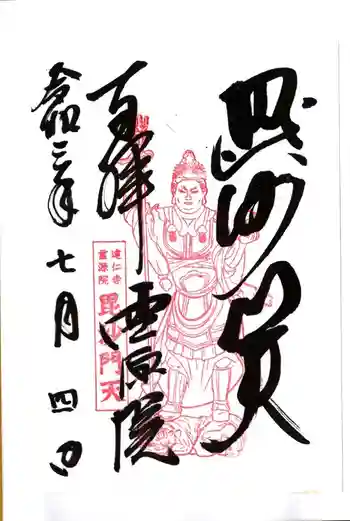 毘沙門天
百拝 霊源院
令和三年 七月 四日
建仁寺
霊源院
毘沙門天